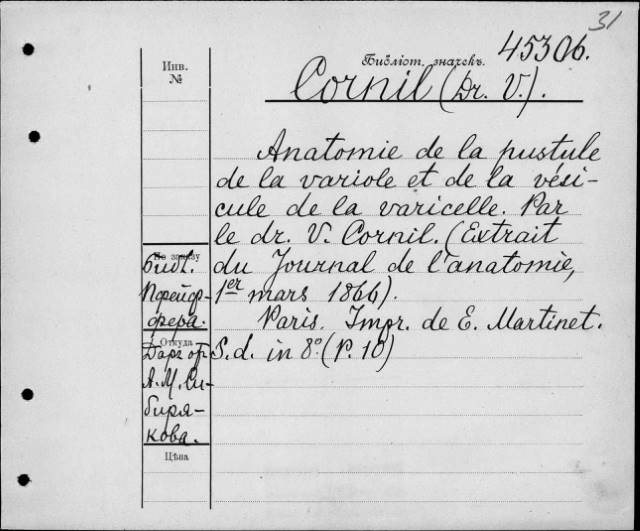 31
45306.
Инв.
№
Библіот. значекъ.
Cornil (Dr. V.).
Anatomie de la pustule
de la variole et de la vési-
cule de la varicelle. Par
le dr. V. Cornil. (Extrait
du Journal de l'anatomie,
1er mars 1866).
Paris. Impr. de E. Martinet.
S. d. in 8º. (P. 10)
По заказу
Библ.
Пфейф-
фера.
Откуда
Даръ от
А. М. Си-
биря-
кова.
Цѣна